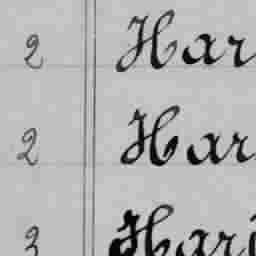 2 Har
2 Har
3 Hari